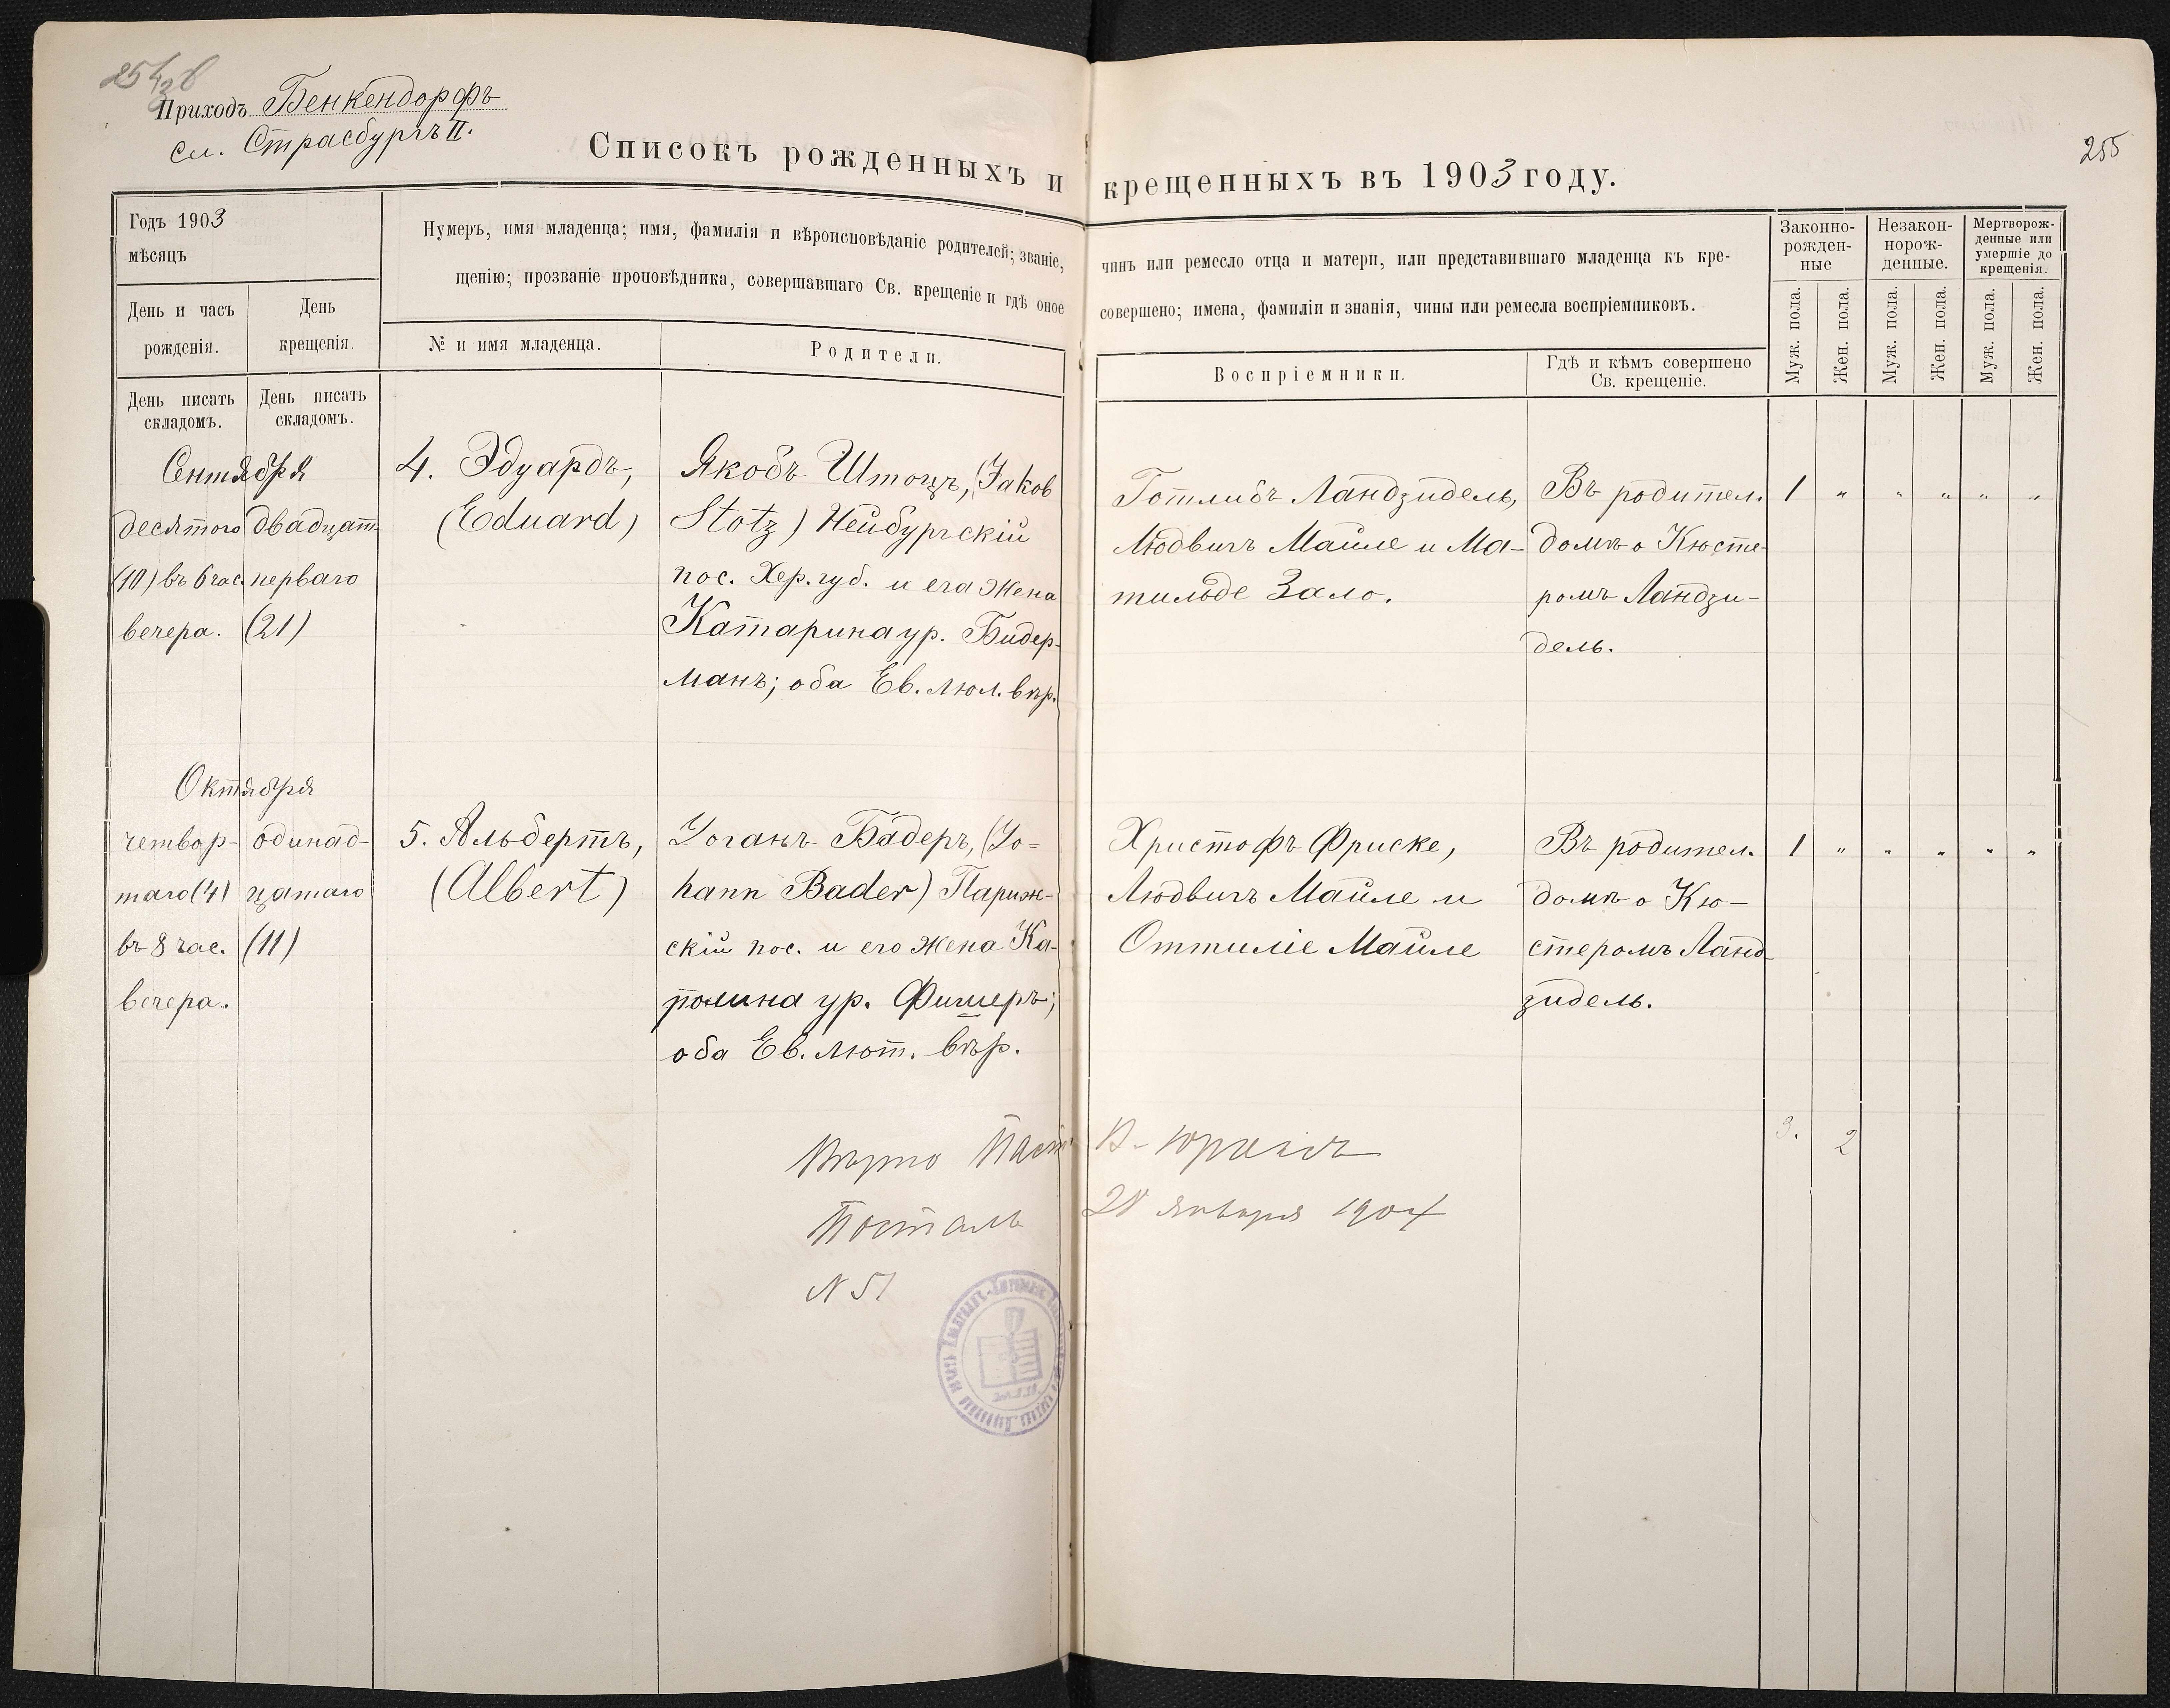 Приходъ Бенкендорфъ
сл. Страсбургъ II.
255
Списокъ рожденныхъ и крещенныхъ въ 1903 году.
Годъ 1903
мѣсяцъ
День и часъ
рожденія.
День
крещенія.
День писать
складомъ.
День писать
складомъ.
Нумеръ, имя младенца; имя, фамилія и вѣроисповѣданіе родителей; званіе, чинъ или ремесло отца и матери, или представившаго младенца къ кре-
щенію; прозваніе проповѣдника, совершавшаго Св. крещеніе и гдѣ оное совершено; имена, фамиліи и знанія, чины или ремесла воспріемниковъ.
№ и имя младенца.
Родители.
Воспріемники.
Гдѣ и кѣмъ совершено
Св. крещеніе.
Законно-
рожден-
ные
Незакон-
норож-
денные.
Мертворож-
денные или
умершіе до
крещенія.
Муж. пола.
Жен. пола.
Муж. пола.
Жен. пола.
Муж. пола.
Жен. пола.
Сентября
десятого
(10) въ 6 час.
вечера.
двадцат-
перваго
(21)
4. Эдуардъ,
(Eduard)
Якобъ Штоцъ, (Jakob
Stotz) Нейбургскій
пос. Хер. губ. и его жена
Катарина ур. Бидер-
манъ; оба Ев. лют. вѣр.
Готлибъ Ландзидель,
Людвигъ Майле и Ма-
тильде Зало.
Въ родител.
домѣ о Кюсте-
ромъ Ландзи-
дель.
1 " " " " "
Октября
четвор-
таго (4)
въ 8 час.
вечера.
одинад-
цатаго
(11)
5. Альбертъ,
(Albert)
Іоганъ Бадеръ, (Jo=
hann Bader) Париж-
скій пос. и его жена Ка-
ролина ур. Фишеръ;
оба Ев. лют. вѣр.
Христофъ Фриске,
Людвигъ Майле и
Оттиліе Майле
Въ родител.
домѣ о Кю-
стеромъ Ланд-
зидель.
1 " " " " "
3. 2
Вѣрно
Посталь
28 января 1904
N 51